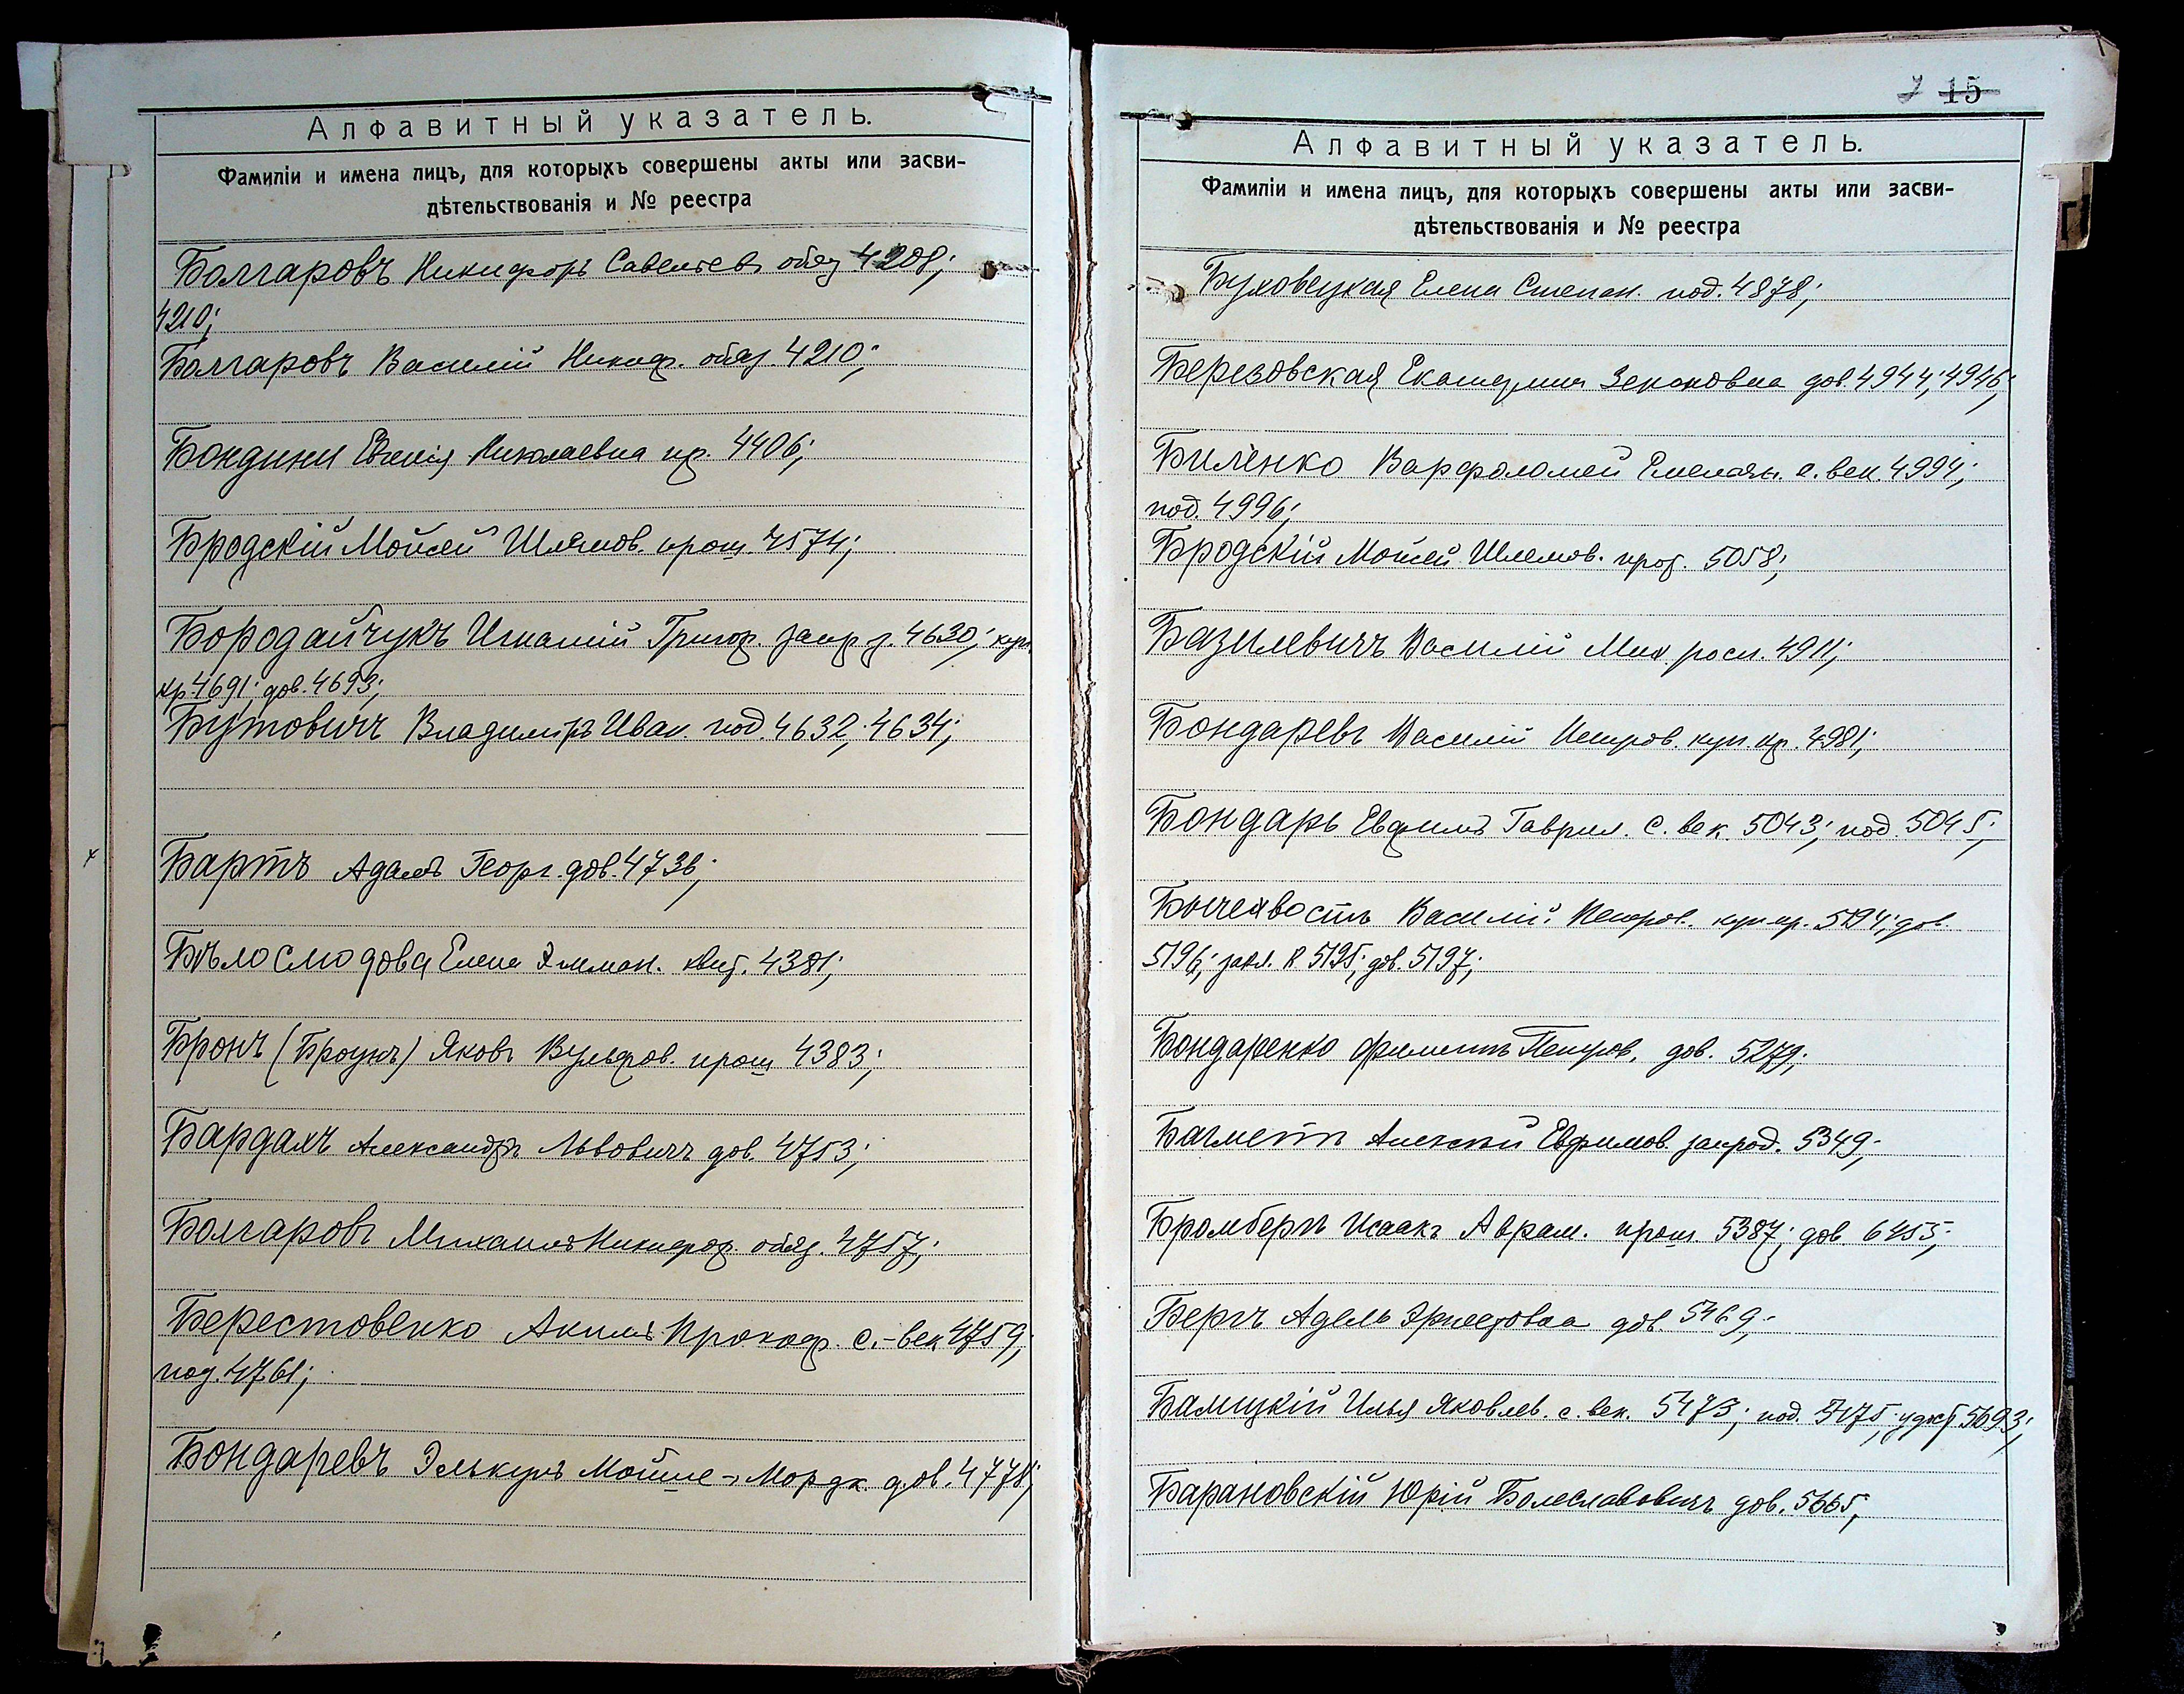 Алфавитный указатель.
Фамиліи и имена лицъ, для которыхъ совершены акты или засви-
дѣтельствованія и № реестра
Болгаровъ Никифоръ Савельев. обяз. 4208;
4210;
Болгаровъ Василій Никиф. обяз. 4210;
Бондини Николаевна 4406;
Бродскій Мойсей Шлемов. прош. 4574;
Бородайчукъ Игнатій Григор. 4630; куп.
кр. 4691; дов. 4693;
Бутовичъ Владиміръ Иван. под. 4632; 4634;
Бартъ Адамъ Георг. дов. 4736;
Бѣлослюдова Елена 4381;
Бронъ (Броунъ) Яковъ Вульфов. прош. 4383;
Бардахъ Александръ Львовичъ дов. 4753;
Болгаровъ Михаилъ Никифор. обяз. 4757;
Берестовенко Акимъ Прокоф. с.-век. 4759;
под. 4761;
Бондаревъ Элькунъ Мойше-Мордк. дов. 4778;
15
Алфавитный указатель.
Фамиліи и имена лицъ, для которыхъ совершены акты или засви-
дѣтельствованія и № реестра
Буховецкая Елена Степан. под. 4878;
Березовская Екатерина Зеноновна дов. 4944; 4946;
Биленко Варфоломей Емельян. с. век. 4994;
под. 4996;
Бродскій Мойсей Шлемов. 5058;
Базилевичъ Василій Мих. росп. 4911;
Бондаревъ Василій Петров. куп. кр. 4981;
Бондарь Евфимъ Гаврил. с. век. 5043; под. 5045;
Василій Петров. куп. кр. 5194; дов.
5196; 5195; дов. 5197;
Бондаренко Филиппъ Петров. дов. 5279;
Багметъ Алексѣй Евфимов. 5349;
Бромбергъ Исаакъ Аврам. прош. 5387; дов. 6455;
Бергъ Адель Эрнестовна дов. 5469;
Балицкій Илья Яковлев. с. век. 5473; под. 5475; удост. 5693;
Барановскій Юрій Болеславовичъ дов. 5665;